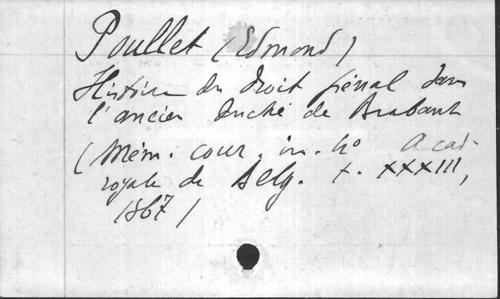 Poullet (Edmond)
Histoire du droit pénal dans
l'ancien duché de Brabant
(Mém. cour. in-4o Acad.
royale de Belg. t. XXXIII,
1867)